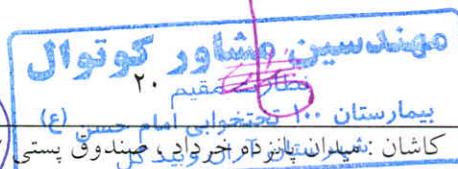 مهندسین مشاور کوتوال
نظارت مقیم
۲۰
بیمارستان ۱۰۰ تختخوابی امام حسن (ع)
شهرستان آران و بیدگل
کاشان : میدان پانزده خرداد ، صندوق پستی